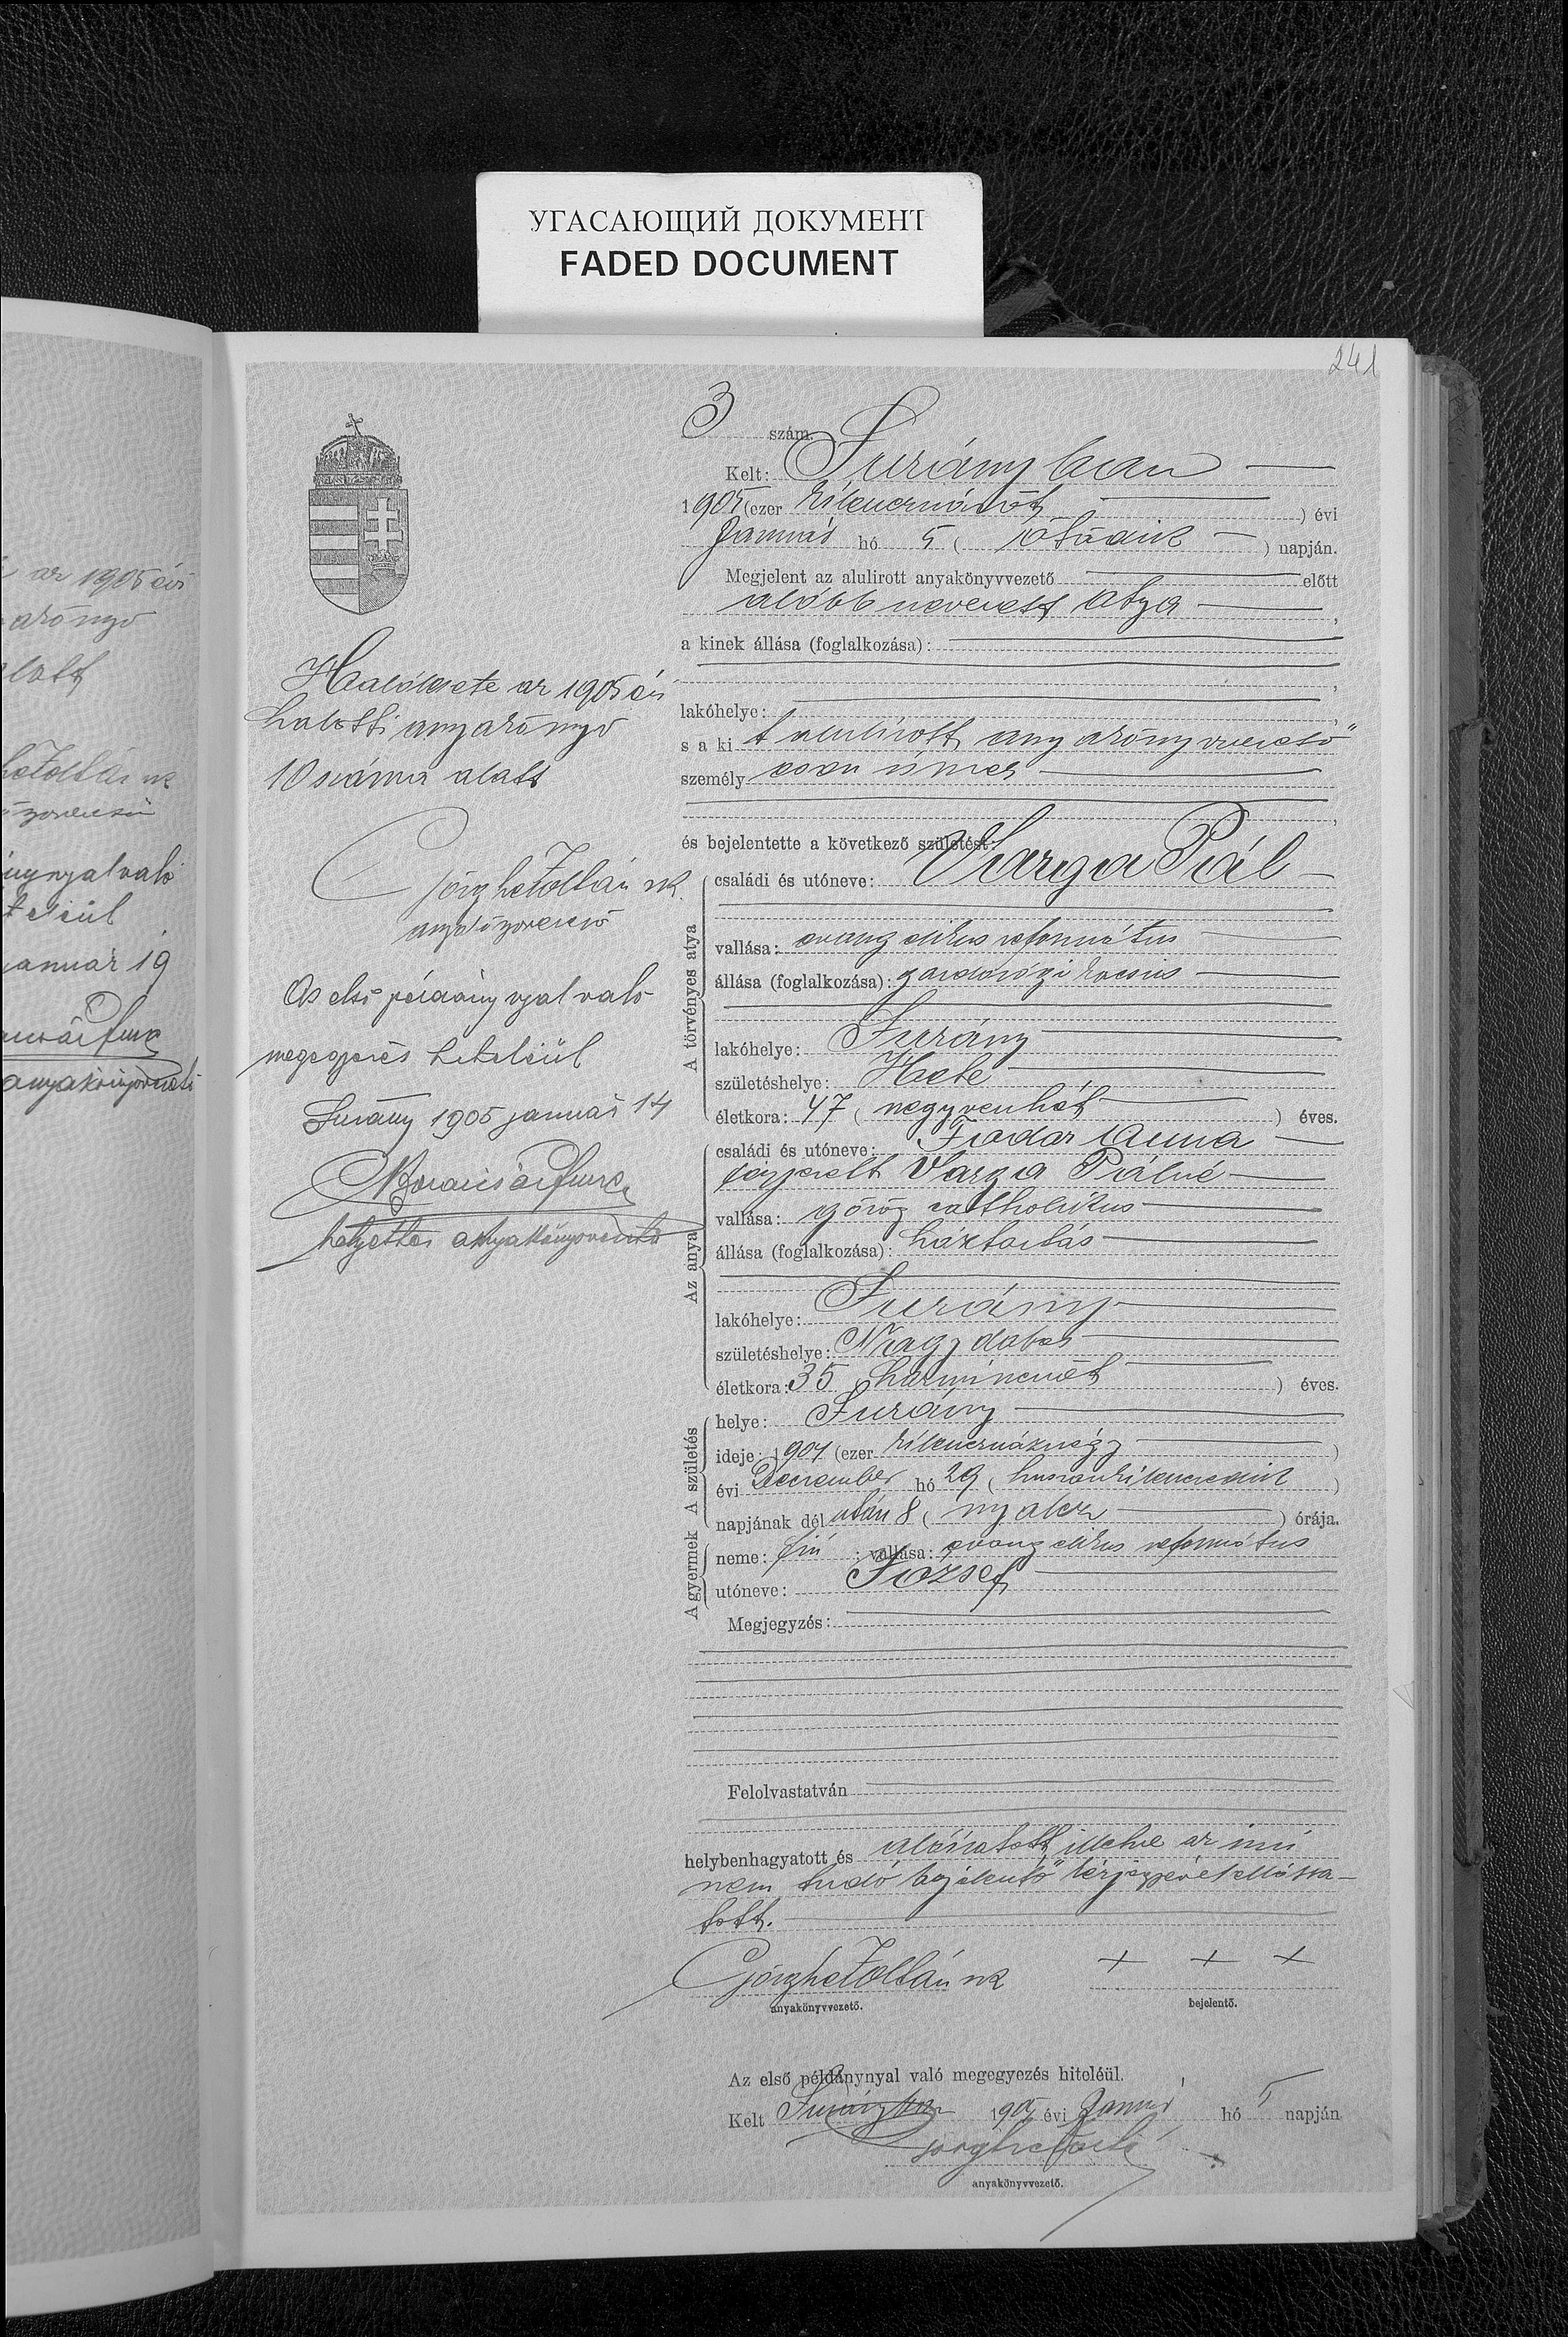 УГАСАЮЩИЙ ДОКУМЕНТ
FADED DOCUMENT
241
3 szám.
Kelt: Surányban
1905 (ezer kilenczszázöt) évi
Január hó 5 (ötödik) napján.
Megjelent az alulirott anyakönyvvezető előtt
alább nevezett atya,
a kinek állása (foglalkozása):
lakóhelye:
s a kit alulírott anyakönyvvezető
személyesen ismer
és bejelentette a következő születést:
A törvényes atya
családi és utóneve: Varga Pál
vallása: evangelikus református
állása (foglalkozása): gazdasági kocsis
lakóhelye: Surány
születéshelye: Hete
életkora: 47 (negyvenhét) éves.
Az anya
családi és utóneve: Fodor Anna
férjezett Varga Pálné
vallása: görög catholikus
állása (foglalkozása): háztartás
lakóhelye: Surány
születéshelye: Nagydobos
életkora: 35 (harminczöt) éves.
A születés
helye: Surány
ideje: 1904 (ezer kilenczszáznégy)
évi Deczember hó 29 (huszonkilenczedik)
napjának dél után 8 (nyolcz) órája.
A gyermek
neme: fiú; vallása: evangelikus református
utóneve: József
Megjegyzés:
Felolvastatván
helybenhagyatott és aláíratott illetve az írni
nem tudó bejelentő kézjegyével elláta-
tott.
Görghe Zoltán sk
+ + +
anyakönyvvezető.
bejelentő.
Az első példánynyal való megegyezés hiteléül.
Kelt Surányban 1905 évi Január hó 5 napján
Görghe Zoltán
anyakönyvvezető.
Halálesete az 1905 évi
halotti anyakönyv
10 száma alatt
Görghe Zoltán sk.
anyakönyvvezető
Az első példánynyal való
megegyezés hiteléül
Surány 1905 január 14
helyettes anyakönyvvezető
az 1905 évi